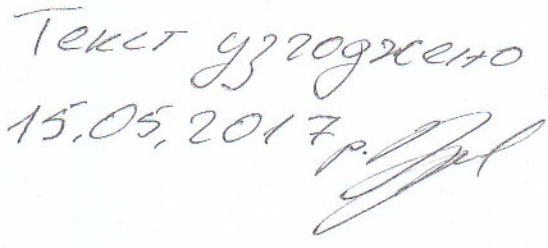 Текст узгоджено
15.05.2017 р.